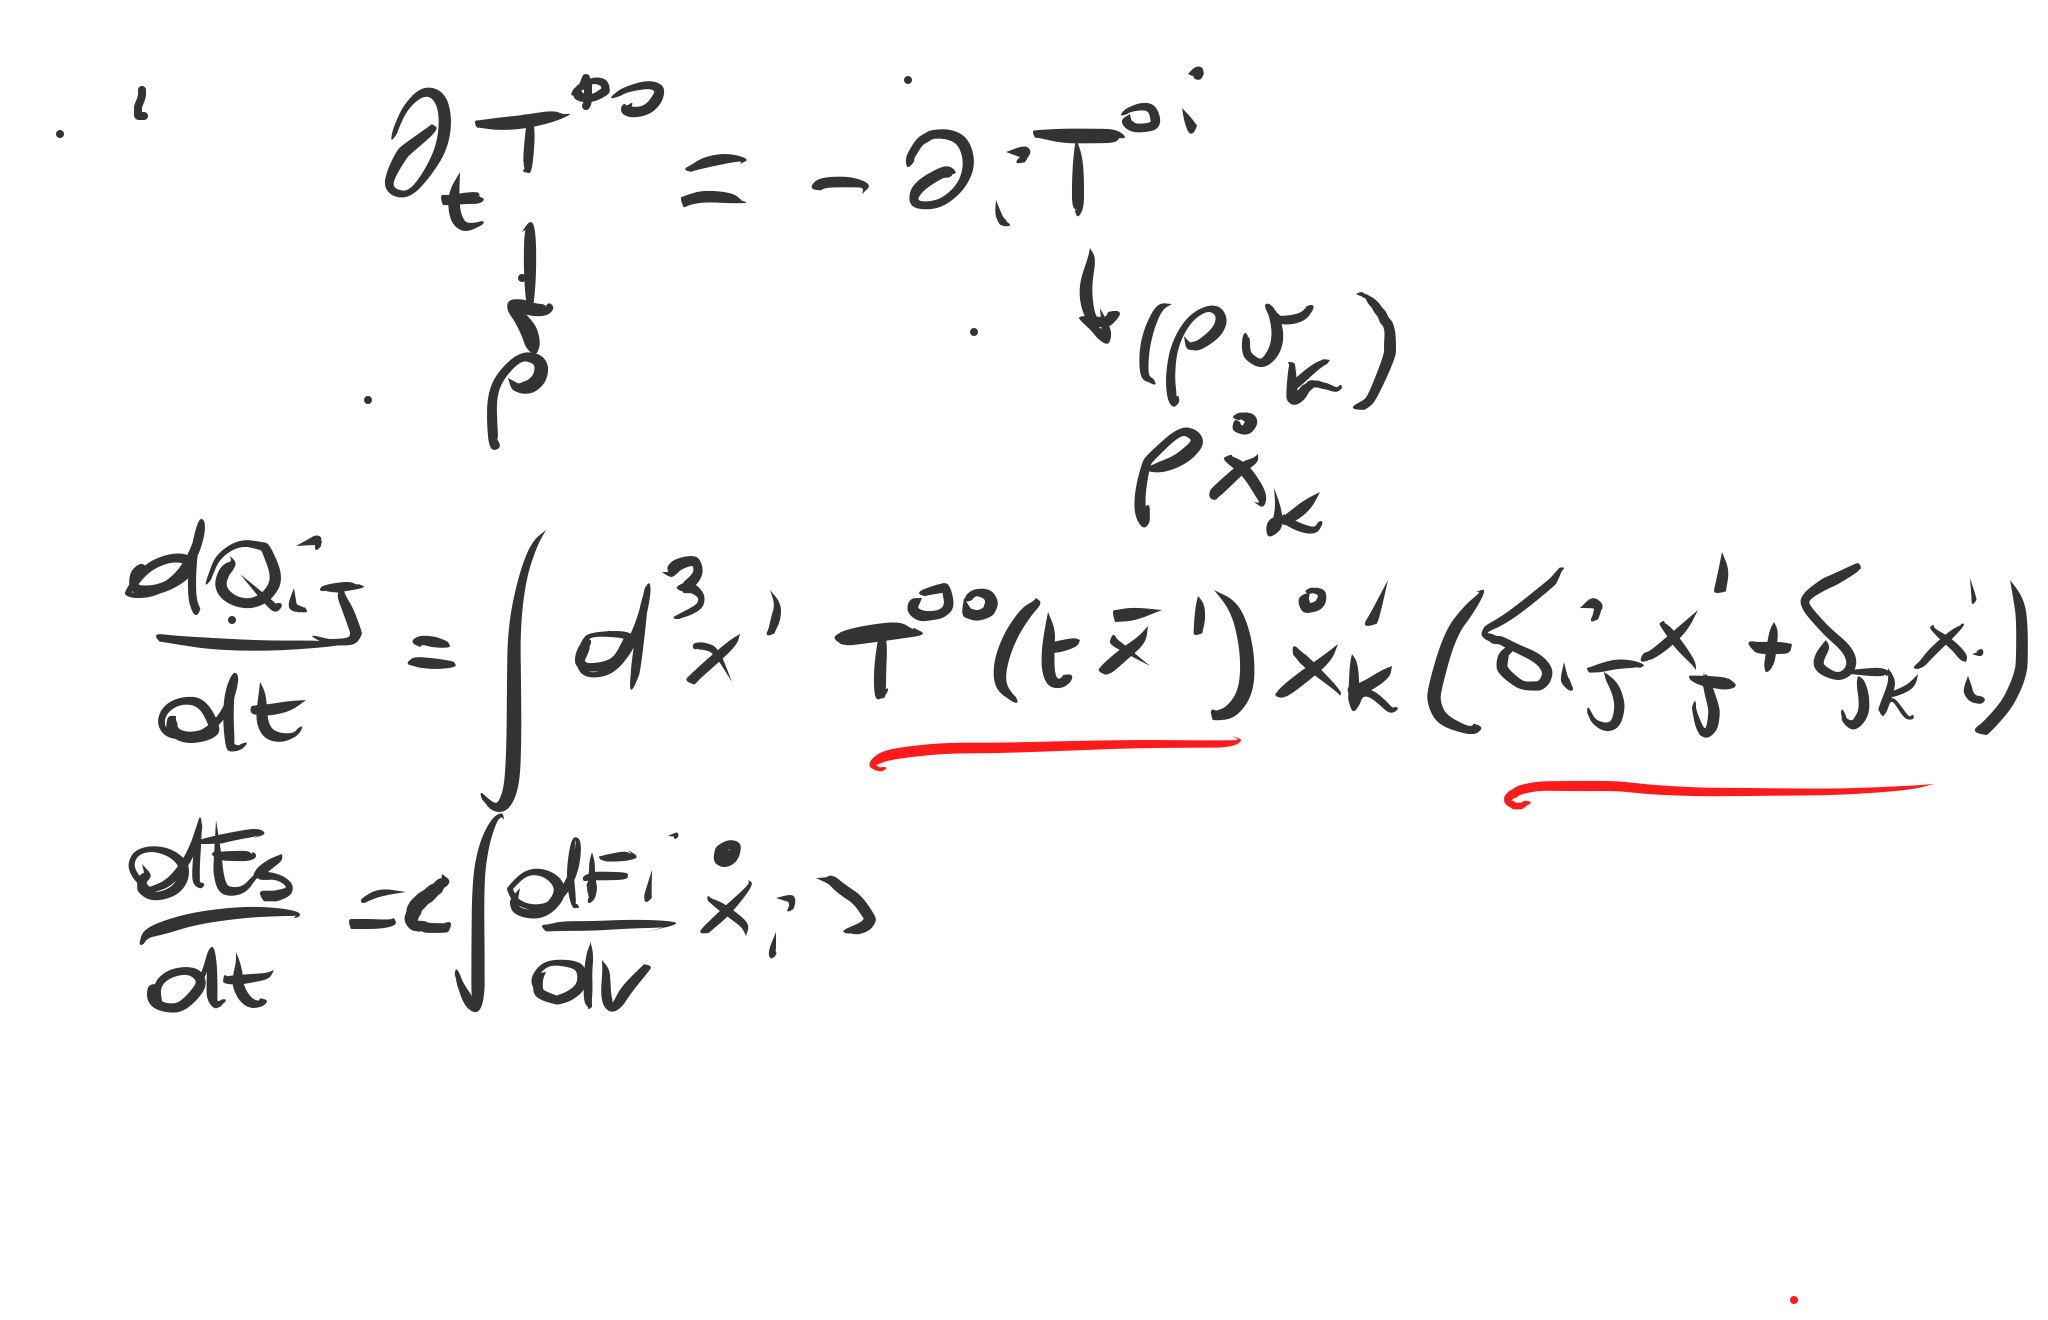 ∂ₜT⁰⁰ = - ∂ᵢT⁰ⁱ
↓ ρ ↓ (ρvₖ)
ρẋₖ
dQᵢⱼ/dt = ∫ d³x' T⁰⁰(t x̄') ẋₖ' (δᵢⱼ xⱼ' + δⱼₖ xᵢ')
dEₛ/dt = <∫ dFᵢ/dv ẋᵢ>